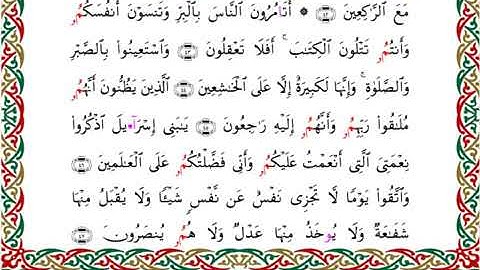 مَعَ ٱلرَّٰكِعِينَ ٤٢ ۞ أَتَامُرُونَ ٱلنَّاسَ بِٱلْبِرِّ وَتَنسَوْنَ أَنفُسَكُمُۥ
وَأَنتُمُۥ تَتْلُونَ ٱلْكِتَٰبَ ۚ أَفَلَا تَعْقِلُونَ ٤٣ وَٱسْتَعِينُوا۟ بِٱلصَّبْرِ
وَٱلصَّلَوٰةِ ۚ وَإِنَّهَا لَكَبِيرَةٌ إِلَّا عَلَى ٱلْخَٰشِعِينَ ٤٤ ٱلَّذِينَ يَظُنُّونَ أَنَّهُمُۥ
مُلَٰقُوا۟ رَبِّهِمُۥ وَأَنَّهُمُۥ إِلَيْهِ رَٰجِعُونَ ٤٥ يَٰبَنِى إِسْرَآءِيلَ ٱذْكُرُوا۟
نِعْمَتِىَ ٱلَّتِى أَنْعَمْتُ عَلَيْكُمُۥ وَأَنِّى فَضَّلْتُكُمُۥ عَلَى ٱلْعَٰلَمِينَ ٤٦
وَٱتَّقُوا۟ يَوْمًا لَّا تَجْزِى نَفْسٌ عَن نَّفْسٍ شَيْـًٔا وَلَا يُقْبَلُ مِنْهَا
شَفَٰعَةٌ وَلَا يُوخَذُ مِنْهَا عَدْلٌ وَلَا هُمُۥ يُنصَرُونَ ٤٧